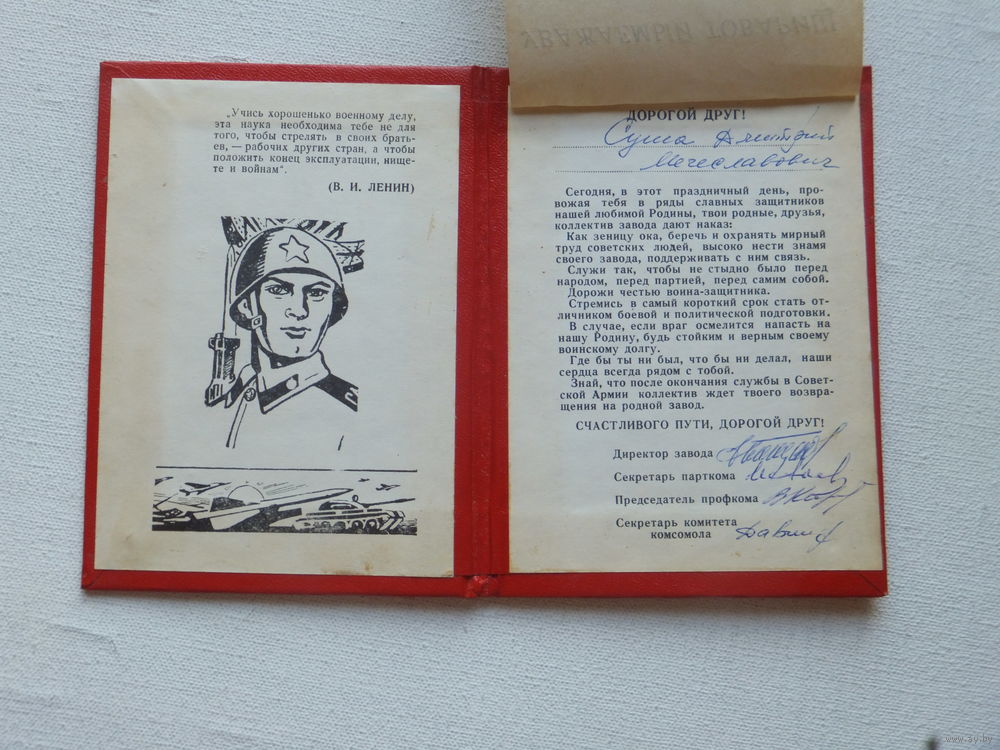 „Учись хорошенько военному делу,
эта наука необходима тебе не для
того, чтобы стрелять в своих брать-
ев, — рабочих других стран, а чтобы
положить конец эксплуатации, нище-
те и войнам“.
(В. И. ЛЕНИН)
УВАЖАЕМЫЙ ТОВАРИЩ
ДОРОГОЙ ДРУГ!
Суша Дмитрий
Мечеславович
Сегодня, в этот праздничный день, про-
вожая тебя в ряды славных защитников
нашей любимой Родины, твои родные, друзья,
коллектив завода дают наказ:
Как зеницу ока, беречь и охранять мирный
труд советских людей, высоко нести знамя
своего завода, поддерживать с ним связь.
Служи так, чтобы не стыдно было перед
народом, перед партией, перед самим собой.
Дорожи честью воина-защитника.
Стремись в самый короткий срок стать от-
личником боевой и политической подготовки.
В случае, если враг осмелится напасть на
нашу Родину, будь стойким и верным своему
воинскому долгу.
Где бы ты ни был, что бы ни делал, наши
сердца всегда рядом с тобой.
Знай, что после окончания службы в Совет-
ской Армии коллектив ждет твоего возвра-
щения на родной завод.
СЧАСТЛИВОГО ПУТИ, ДОРОГОЙ ДРУГ!
Директор завода
Секретарь парткома
Председатель профкома
Секретарь комитета
комсомола
www.ay.by